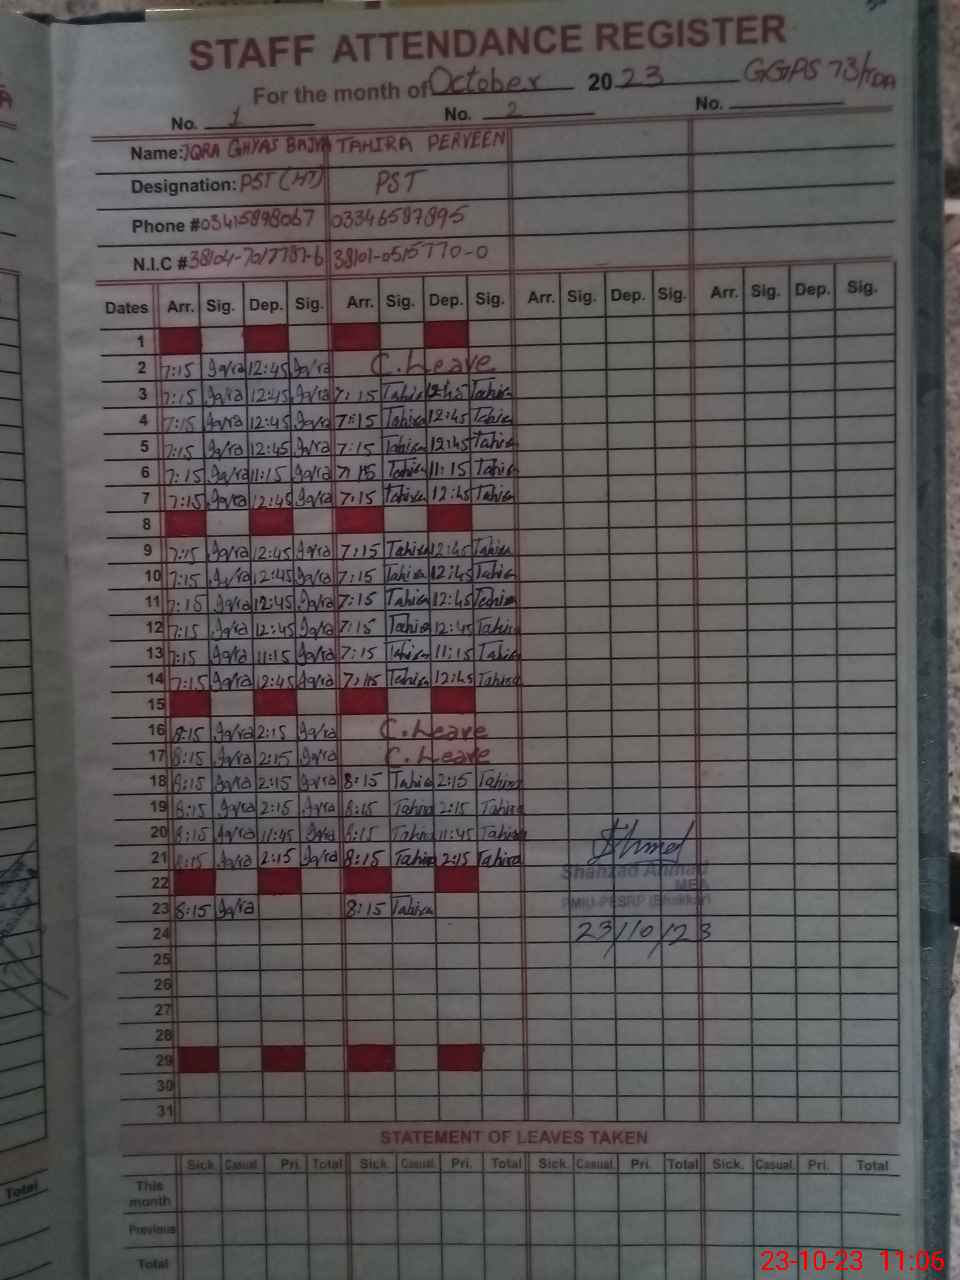 STAFF ATTENDANCE REGISTER
For the month of October 2023 GGPS 73/TDA
No. 1 No. 2 No.
Name: IQRA GHYAS BAJWA TAHIRA PERVEEN
Designation: PST (HT) PST
Phone # 03415898067 03346587895
N.I.C # 38104-7017787-6 38101-0515770-0
Dates Arr. Sig. Dep. Sig. Arr. Sig. Dep. Sig. Arr. Sig. Dep. Sig. Arr. Sig. Dep. Sig.
1
2 7:15 Iqra 12:45 Iqra C. Leave
3 7:15 Iqra 12:45 Iqra 7:15 Tahira 12:45 Tahira
4 7:15 Iqra 12:45 Iqra 7:15 Tahira 12:45 Tahira
5 7:15 Iqra 12:45 Iqra 7:15 Tahira 12:45 Tahira
6 7:15 Iqra 11:15 Iqra 7:15 Tahira 11:15 Tahira
7 7:15 Iqra 12:45 Iqra 7:15 Tahira 12:45 Tahira
8
9 7:15 Iqra 12:45 Iqra 7:15 Tahira 12:45 Tahira
10 7:15 Iqra 12:45 Iqra 7:15 Tahira 12:45 Tahira
11 7:15 Iqra 12:45 Iqra 7:15 Tahira 12:45 Tahira
12 7:15 Iqra 12:45 Iqra 7:15 Tahira 12:45 Tahira
13 7:15 Iqra 11:15 Iqra 7:15 Tahira 11:15 Tahira
14 7:15 Iqra 12:45 Iqra 7:15 Tahira 12:45 Tahira
15
16 8:15 Iqra 2:15 Iqra C. Leave
17 8:15 Iqra 2:15 Iqra C. Leave
18 8:15 Iqra 2:15 Iqra 8:15 Tahira 2:15 Tahira
19 8:15 Iqra 2:15 Iqra 8:15 Tahira 2:15 Tahira
20 8:15 Iqra 11:45 Iqra 8:15 Tahira 11:45 Tahira
21 8:15 Iqra 2:15 Iqra 8:15 Tahira 2:15 Tahira
Shahzad Ahmad
22
MEA
23 8:15 Iqra 8:15 Tahira
PMIU-PESRP (Bhakkar)
24 23/10/23
25
26
27
28
29
30
31
STATEMENT OF LEAVES TAKEN
Sick. Casual. Pri. Total Sick. Casual. Pri. Total Sick. Casual. Pri. Total Sick. Casual. Pri. Total
This month
Previous
Total Total
23-10-23 11:06